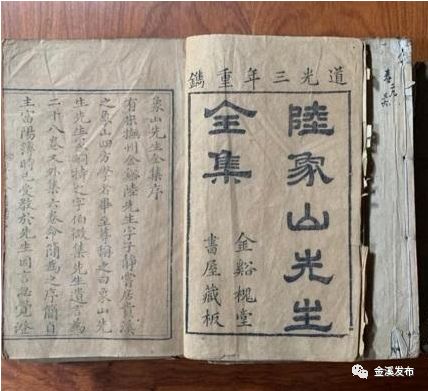 道光三年重鐫
陸象山先生
全集
金谿槐堂
書屋藏板
象山先生全集序
有宋撫州金谿陸先生字子靜嘗居貴溪
之象山四方學者畢至尊稱之曰象山先
生先生冢嗣持之字伯微集先生遺言為
二十八卷又外集六卷命簡為之序簡自
主富陽簿時已受教於先生因言忽覺澄
金溪发布